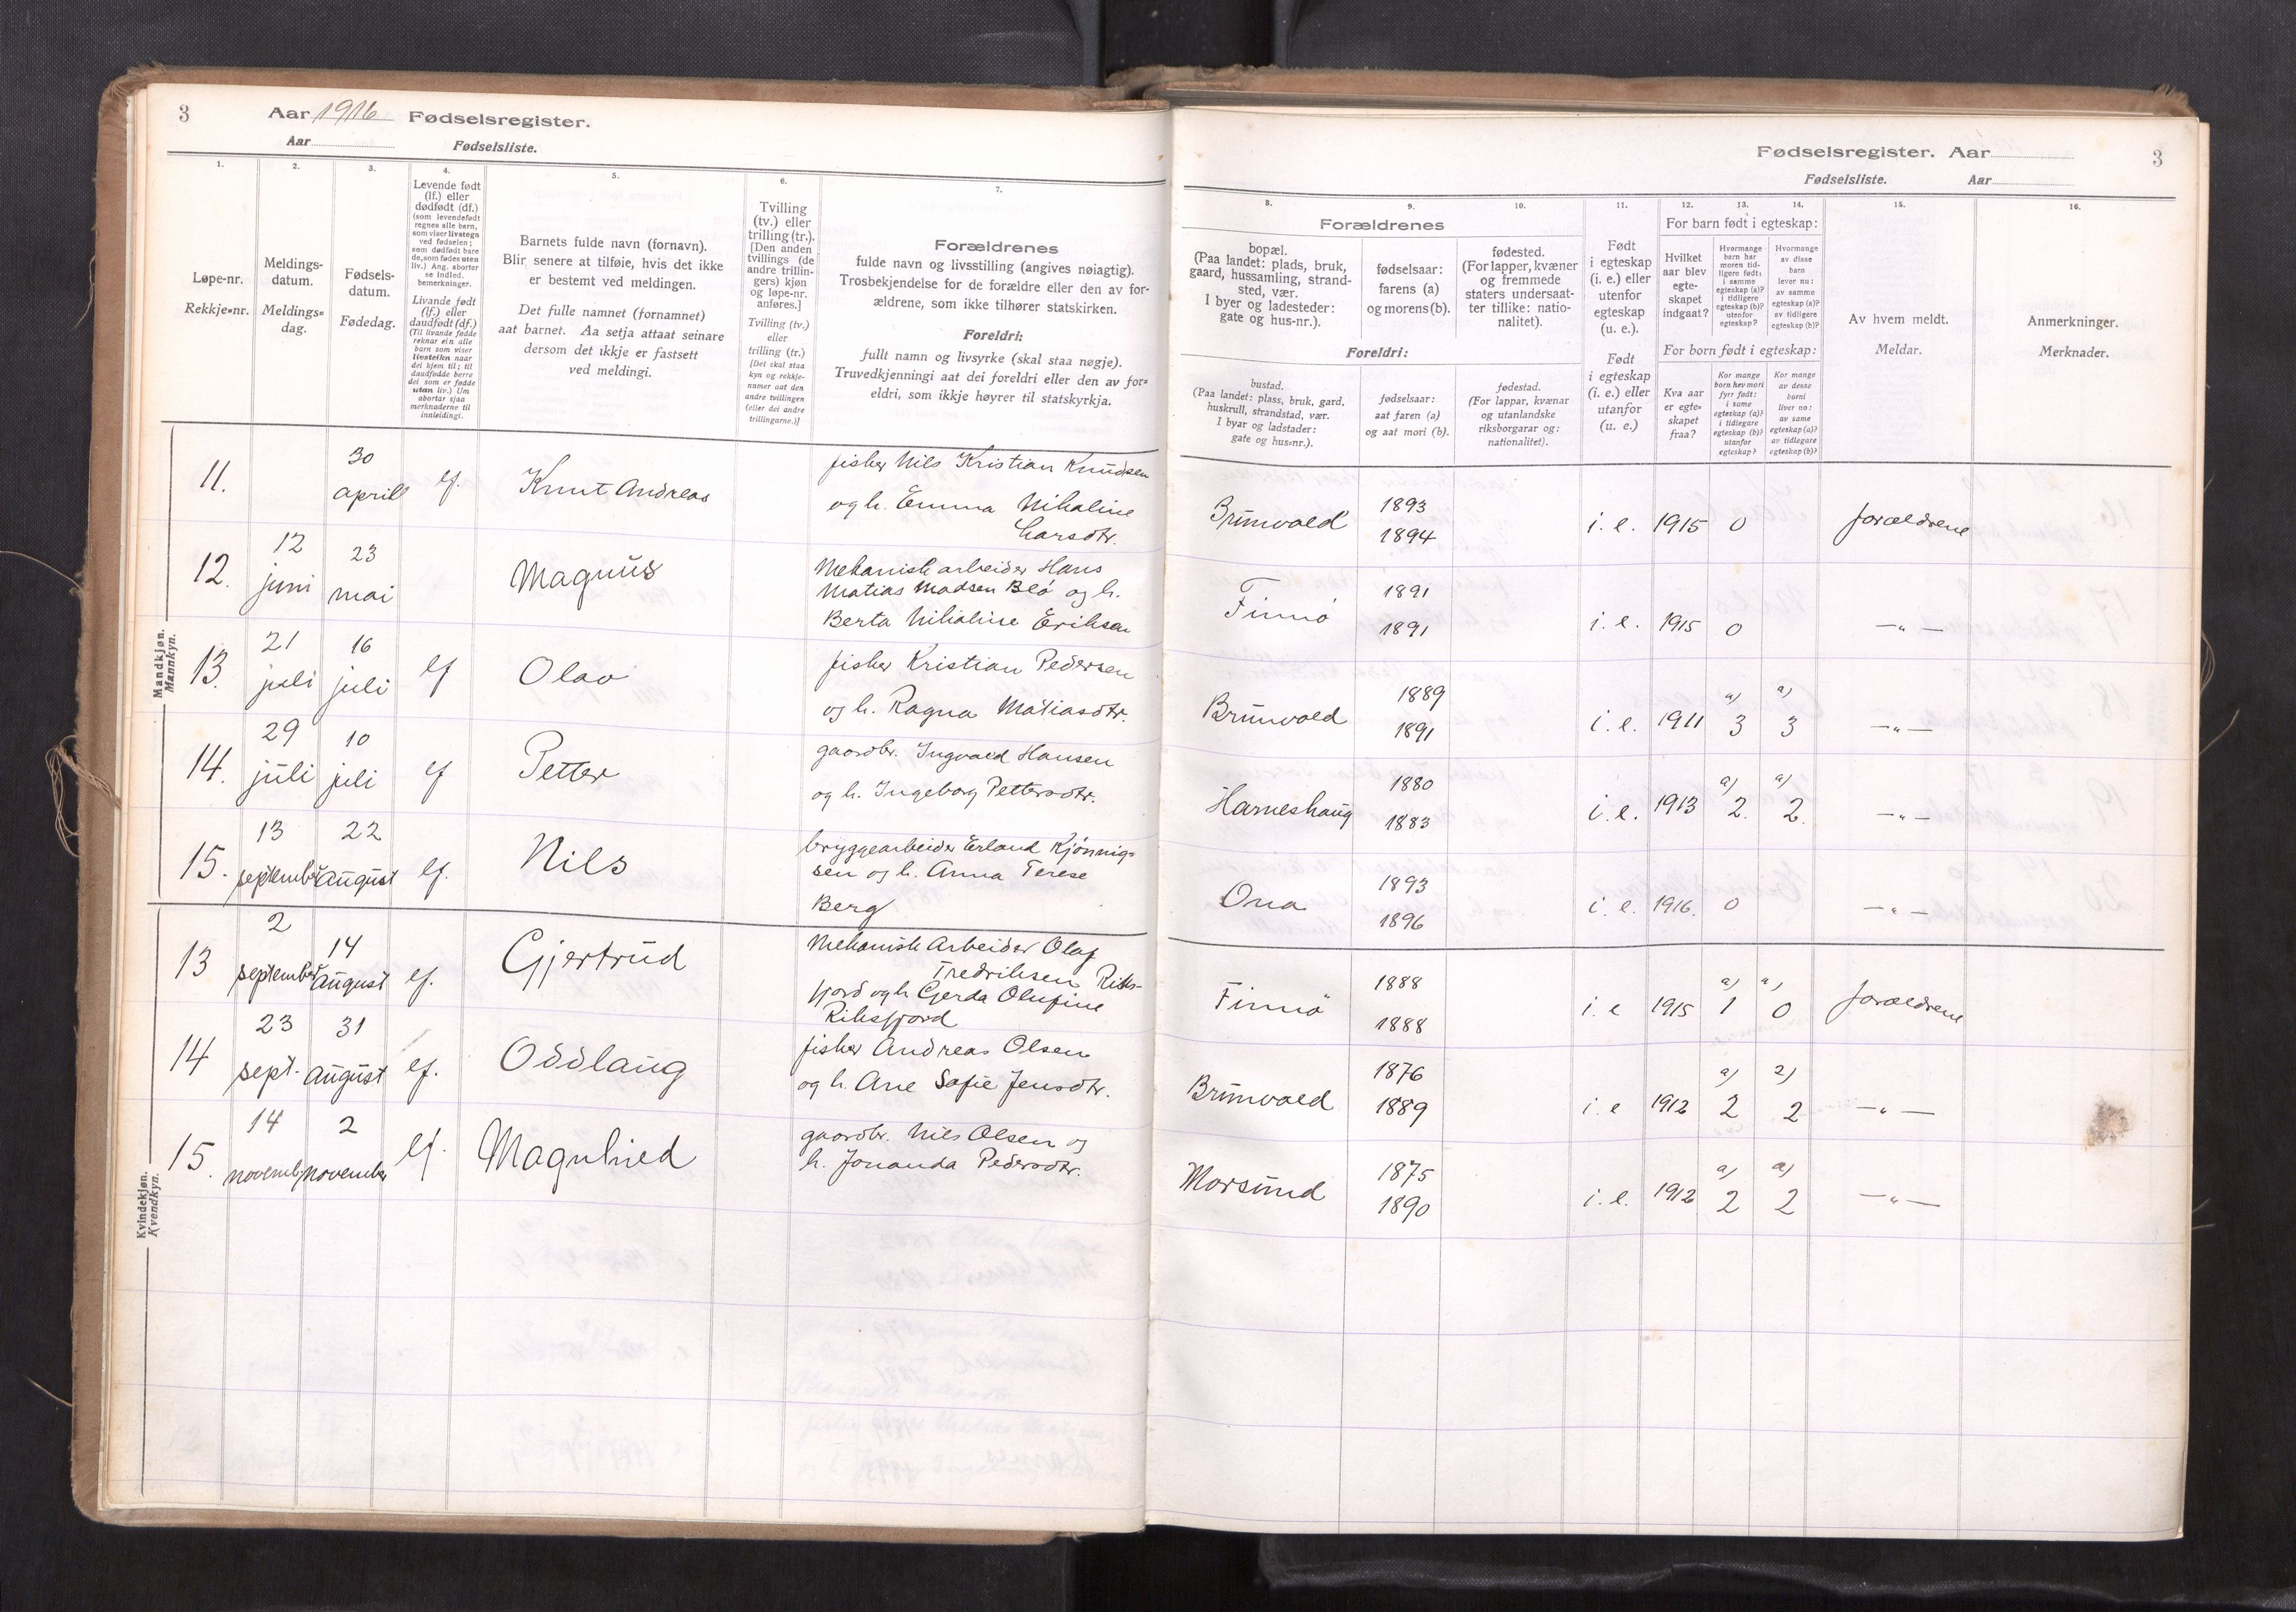 3
Aar 1916 Fødselsregister.
Aar
Fødselsliste.
1.
2.
3.
4.
5.
6.
7.
Løpe-nr.
Rekkje-nr.
Meldings-
datum.
Meldings-
dag.
Fødsels-
datum.
Fødedag.
Levende født
(lf.) eller
dødfødt (df.)
(som levendefødt
regnes alle barn,
som viser livstegn
ved fødselen;
som dødfødt bare
de, som fødes uten
liv.) Ang. aborter
se indled.
bemerkninger.
Livande født
(lf.) eller
daudfødt (df.)
(Til livande fødde
reknar ein alle
barn som viser
livsteikn naar
dei kjem til; til
daudfødde berre
dei som er fødde
utan liv.) Um
abortar sjaa
merknaderne til
innleidingi.
Barnets fulde navn (fornavn).
Blir senere at tilføie, hvis det ikke
er bestemt ved meldingen.
Det fulle namnet (fornamnet)
aat barnet. Aa setja attaat seinare
dersom det ikkje er fastsett
ved meldingi.
Tvilling
(tv.) eller
trilling (tr.).
[Den anden
tvillings (de
andre trillin-
gers) kjøn
og løpe-nr.
anføres.]
Tvilling (tv.)
eller
trilling (tr.)
[Det skal staa
kyn og rekkje-
numer aat den
andre tvillingen
(eller dei andre
trillingarne.)]
Forældrenes
fulde navn og livsstilling (angives nøiagtig).
Trosbekjendelse for de forældre eller den av for-
ældrene, som ikke tilhører statskirken.
Foreldri:
fullt namn og livsyrke (skal staa nøgje).
Truvedkjenningi aat dei foreldri eller den av for-
eldri, som ikkje høyrer til statskyrkja.
Mandkjøn.
Mannkyn.
11.
30
april
lf.
Knut Andreas
fisker Nils Kristian Knudsen
og h. Emma Nikoline
Larsdtr.
12.
12
juni
23
mai
Magnus
Mekanisk arbeider Hans
Matias Madsen Blø og h.
Berta Nikoline Eriksen
13.
21
juli
16
juli
lf
Olav
fisker Kristian Pedersen
og h. Ragna Matiasdtr.
14.
29
juli
10
juli
lf
Petter
gaardbr. Ingvald Hansen
og h. Ingeborg Pettersdtr.
15.
13
september
22
august
lf.
Nils
bryggearbeider Erland Kjønnig-
sen og h. Anna Terese
Berg
Kvindekjøn.
Kvendkyn.
13
2
september
14
august
lf.
Gjertrud
Mekanisk Arbeider Olaf
Fredriksen Riks-
fjord og h Gerda Olufine
Riksfjord
14
23
sept.
31
august
lf.
Oddlaug
fisker Andreas Olsen
og h. Ane Sofie Jensdtr.
15.
14
novemb.
2
november
lf.
Magnhied
gaardbr. Nils Olsen og
h. Jonanda Pedersdtr.
Fødselsregister. Aar
3
Fødselsliste.
Aar
8.
9.
10.
11.
12.
13.
14.
15.
16.
Forældrenes
bopæl.
(Paa landet: plads, bruk,
gaard, hussamling, strand-
sted, vær.
I byer og ladesteder:
gate og hus-nr.).
fødselsaar:
farens (a)
og morens (b).
fødested.
(For lapper, kvæner
og fremmede
staters undersaat-
ter tillike: natio-
nalitet).
Foreldri:
bustad.
(Paa landet: plass, bruk, gard,
huskrull, strandstad, vær.
I byar og ladstader:
gate og hus-nr.).
fødselsaar:
aat faren (a)
og aat mori (b).
fødestad.
(For lappar, kvænar
og utanlandske
riksborgarar og:
nationalitet).
Født
i egteskap
(i. e.) eller
utenfor
egteskap
(u. e.).
Født
i egteskap
(i. e.) eller
utanfor
(u. e.)
For barn født i egteskap:
Hvilket
aar blev
egte-
skapet
indgaat?
Hvormange
barn har
moren tid-
ligere født:
i samme
egteskap (a)?
i tidligere
egteskap (b)?
utenfor
egteskap?
Hvormange
av disse
barn
lever nu:
av samme
egteskap (a)?
av tidligere
egteskap (b)?
For born født i egteskap:
Kva aar
er egte-
skapet
fraa?
Kor mange
born hev mori
fyrr født:
i same
egteskap (a)?
i tidlegare
egteskap (b)?
utanfor
egteskap?
Kor mange
av desse
borni
liver no:
av same
egteskap (a)?
av tidlegare
egteskap (b)?
Av hvem meldt.
Meldar.
Anmerkninger.
Merknader.
Brunvold
1893
1894
i. e. 1915 0
forældrene
Finnø
1891
1891
i. e. 1915 0
— „ —
Brunvold
1889
1891
i. e. 1911
a)
3
a)
3
— „ —
Harneshaug
1880
1883
i. e. 1913
a)
2.
a)
2.
— „ —
Ona
1893
1896
i. e. 1916. 0
— „ —
Finnø
1888
1888
i. e 1915
a)
1
a)
0
forældrene
Brunvold
1876
1889
i. e 1912
a)
2
a)
2
— „ —
Morsund
1875
1890
i. e. 1912
a)
2
a)
2
— „ —